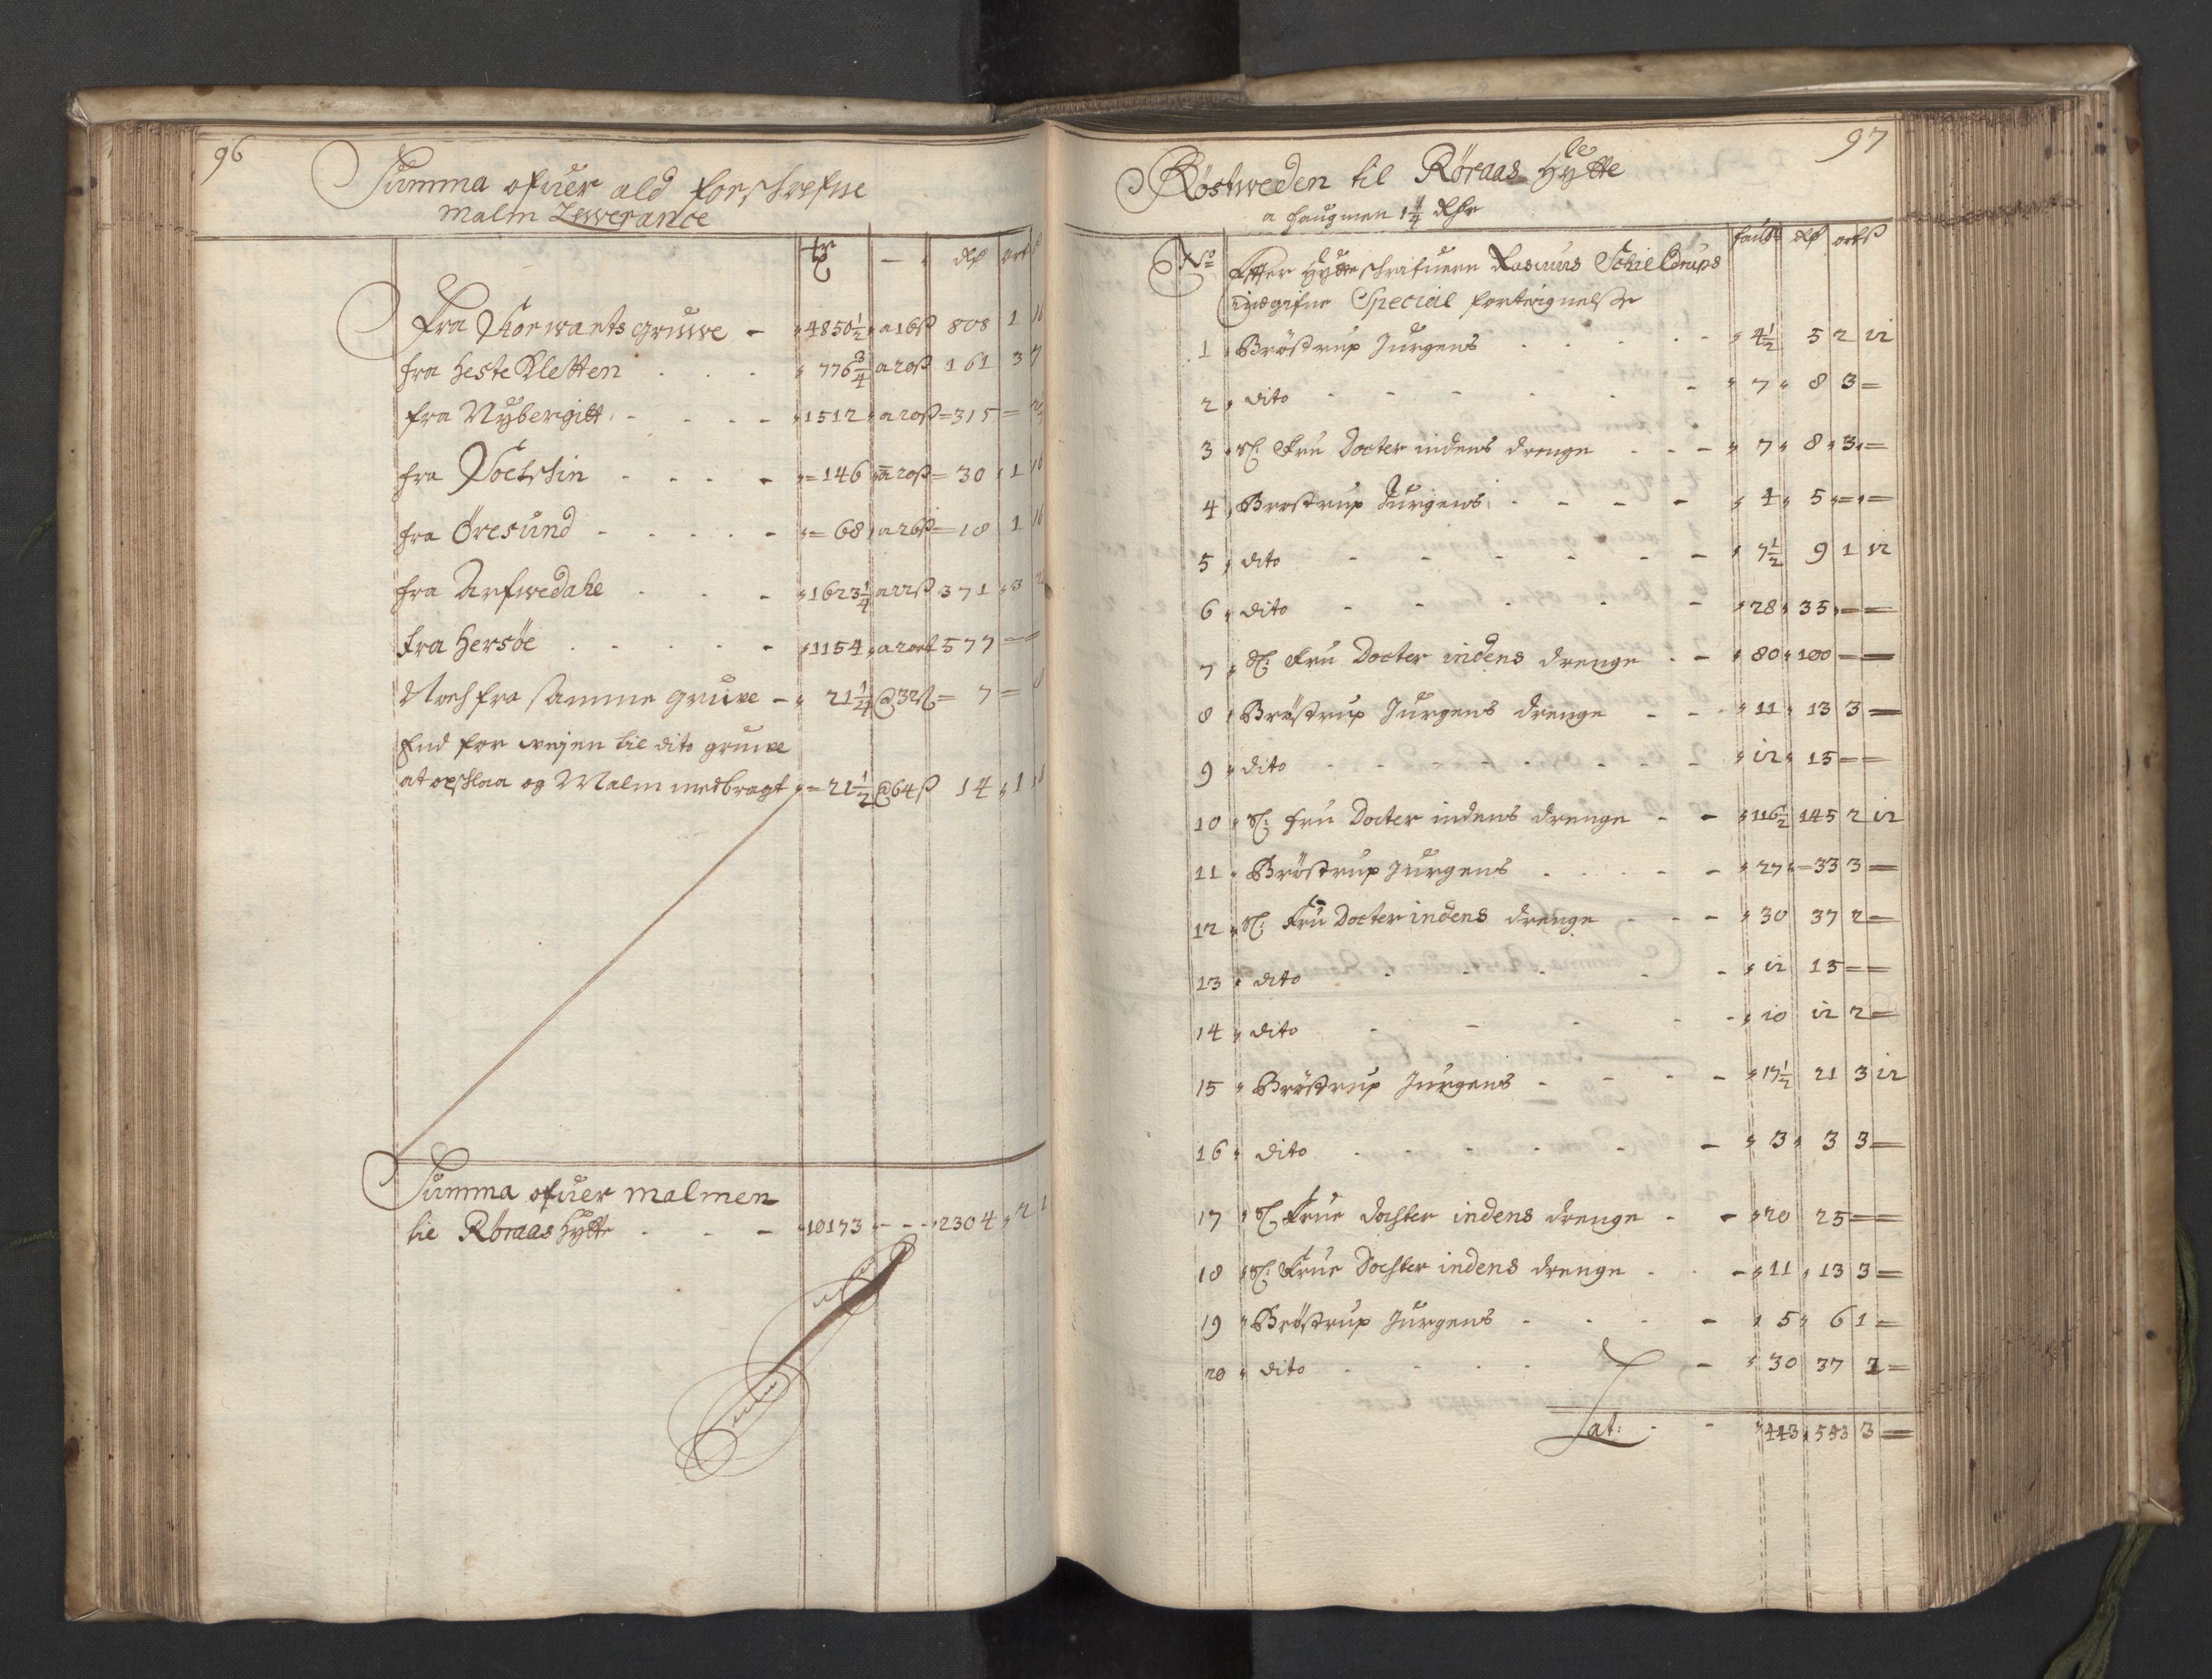 96
Summa ofuer ald forschrefne
Malm Lewerance
rdr ort
Fra Storwarts gruwe - 4850½ a 16ß 808 1
fra Heste Kletten 776¾ a 20ß 161 3
fra Nybergitt 1512 a 20ß = 315 =
fra 146 a 20ß = 30 1
fra Öresund - 68 a 26ß = 18 1
fra Arfwedahle - 1623¼ a 22ß 371 3
fra Hersöe - 1154 a 2 ort 577 =
Noch fra samme gruve - 21¼ @ 32ß = 7 =
End for vejen til dito gruve
at opschlaa og Malm medbragt = 21½ @ 64ß 14 1
Summa ofuer malmen
til Röraas Hytte - 10173 - - - 2304 2
97
Röstweden til Röraas Hytte
a faugnen 1¼ Rdr
No faufn rdr ort ß
Efter Hytteschrifueren Rasmus Schieldrups
indgifne Special forteignelse
1 Bröstrup Jurgens 4½ 5 2 12
2 dito - 7 8 3 =
3 Sl: Fru Docter indens drenge - 7 8 3 =
4 Brostrup Jurgens - 4 5 = =
5 dito - 7½ 9 1 12
6 dito - 28 35 = =
7 Sl: Fru Docter indens drenge - 80 100 = =
8 Bröstrup Jurgens drenge - 11 13 3 =
9 dito - 12 15 = =
10 Sl: fru Docter indens drenge - 116½ 145 2 12
11 Bröstrup Jurgens - 27 = 33 3 =
12 Sl: Fru Docter indens drenge - 30 37 2 =
13 dito - 12 15 = =
14 dito - 10 12 2 =
15 Bröstrup Jurgens - 17½ 21 3 12
16 dito - 3 3 3 =
17 Sl: Frue dochter indens drenge - 20 25 = =
18 Sl: Frue Dochter indens drenge - 11 13 3 =
19 Bröstrup Jurgens - 5 6 1 =
20 dito - 30 37 2 =
Lat: - 443 553 3 =